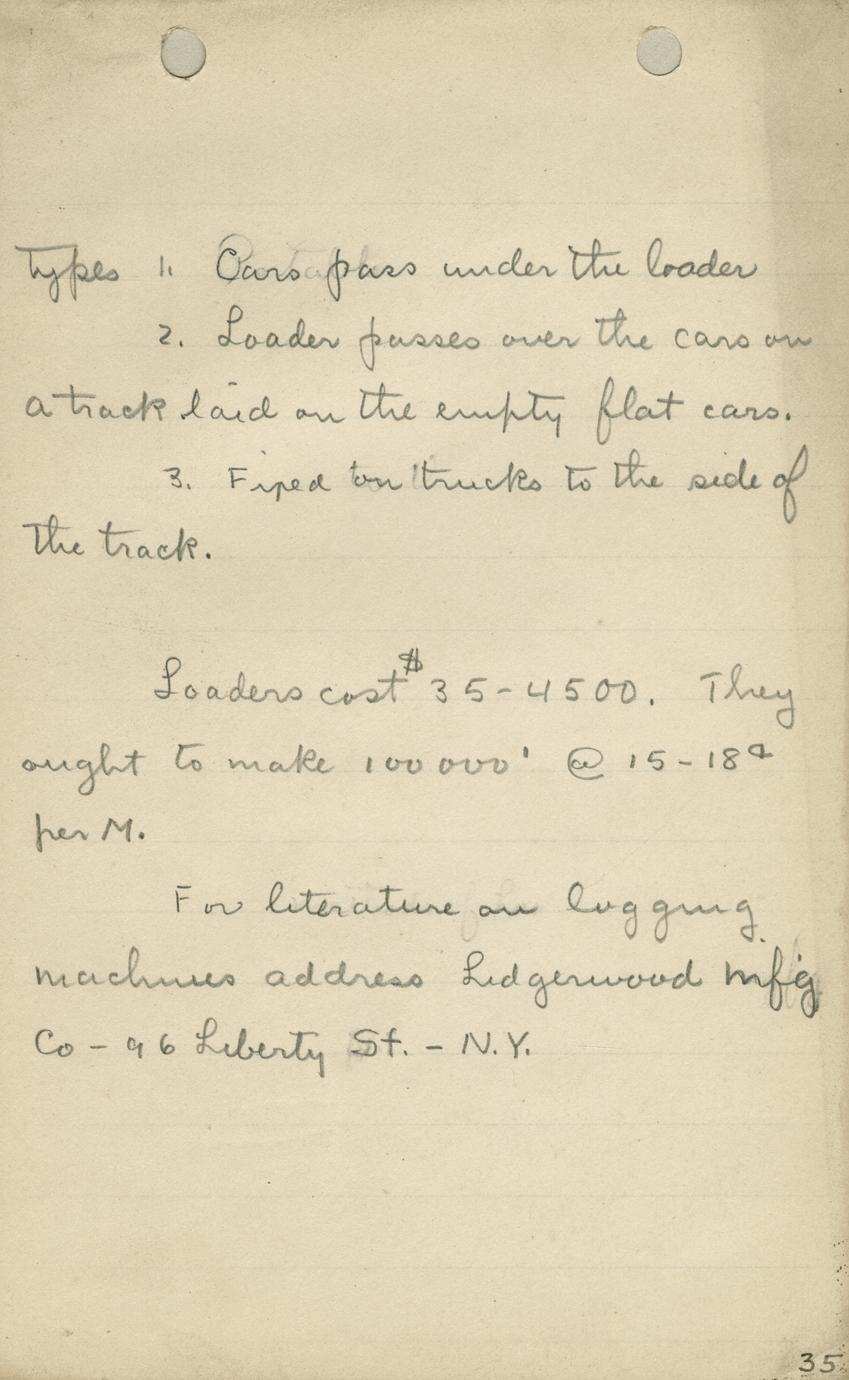 types 1. Cars pass under the loader
2. Loader passes over the cars on
a track laid on the empty flat cars.
3. Fixed on trucks to the side of
the track.
Loaders cost $35-4500. They
ought to make 100000' @ 15-18¢
per M.
For literature on logging
machines address Lidgerwood Mf'g
Co - 96 Liberty St. - N.Y.
35